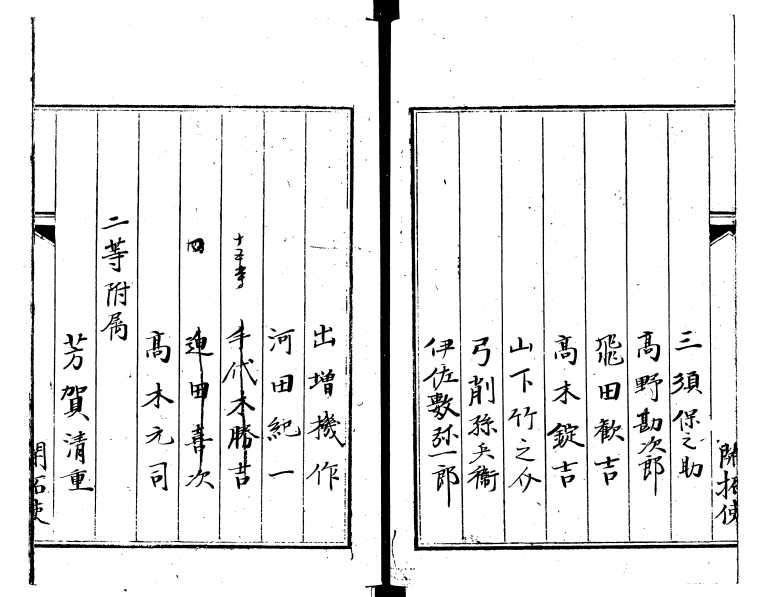 開拓使
三須保之助
高野勘次郎
飛田歓吉
高木錠吉
山下竹之介
弓削孫兵衛
伊佐敷弥一郎
出増機作
河田紀一
十五等 手代木勝吉
四 迫田喜次
高木元司
二等附属
芳賀清重
開拓使